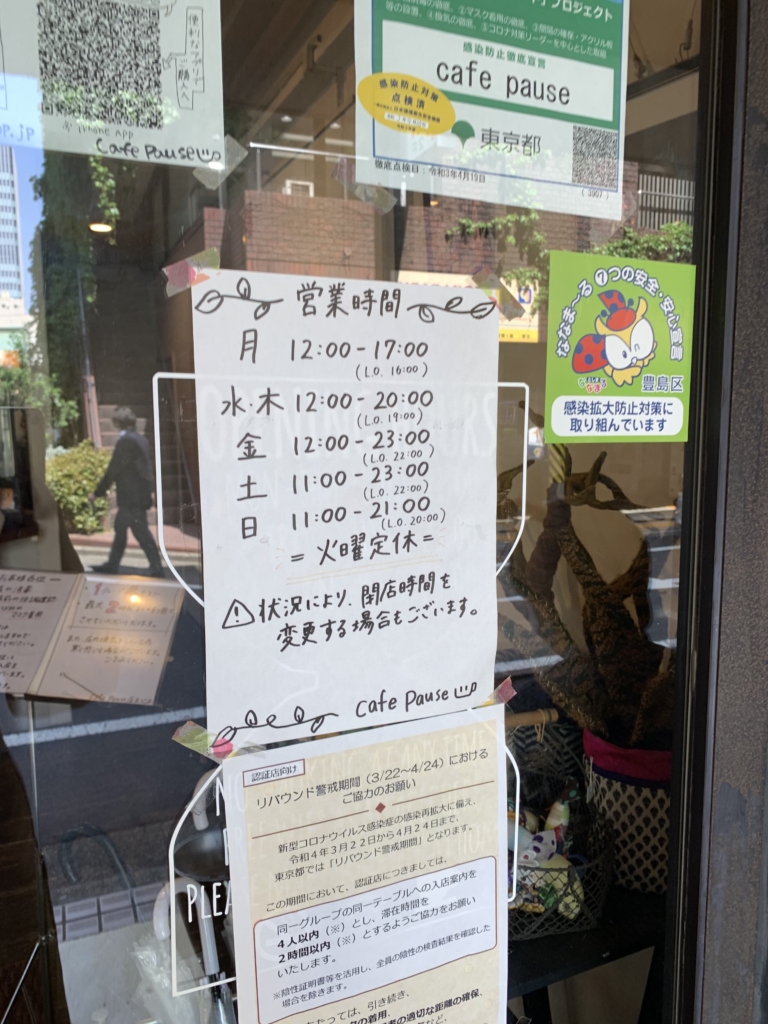 便利なアプリで
ご購入
op.jp
iPhone APP
cafe pause
プロジェクト
等の設置、④換気の徹底、⑤コロナ対策リーダーを中心とした取組
感染防止徹底宣言
cafe pause
感染防止対策
点検済
東京都
徹底点検日:令和3年4月19日
(3907)
ななま~る 7つの安全・安心宣言
豊島区
感染拡大防止対策に
取り組んでいます
営業時間
月 12:00-17:00
(L.O. 16:00)
水・木 12:00-20:00
(L.O. 19:00)
金 12:00-23:00
(L.O. 22:00)
土 11:00-23:00
(L.O. 22:00)
日 11:00-21:00
(L.O. 20:00)
=火曜定休=
⚠状況により、閉店時間を
変更する場合もございます。
cafe pause
認証店向け
リバウンド警戒期間(3/22~4/24)における
ご協力のお願い
新型コロナウイルス感染症の感染再拡大に備え、
令和4年3月22日から4月24日まで、
東京都では「リバウンド警戒期間」となります。
この期間において、認証店につきましては、
同一グループの同一テーブルへの入店案内を
4人以内(※)とし、滞在時間を
2時間以内(※)とするようご協力をお願い
いたします。
※陰性証明書等を活用し、全員の陰性の検査結果を確認した
場合を除きます。
たっては、引き続き、
の着用、
者の適切な距離の確保、
PLEA